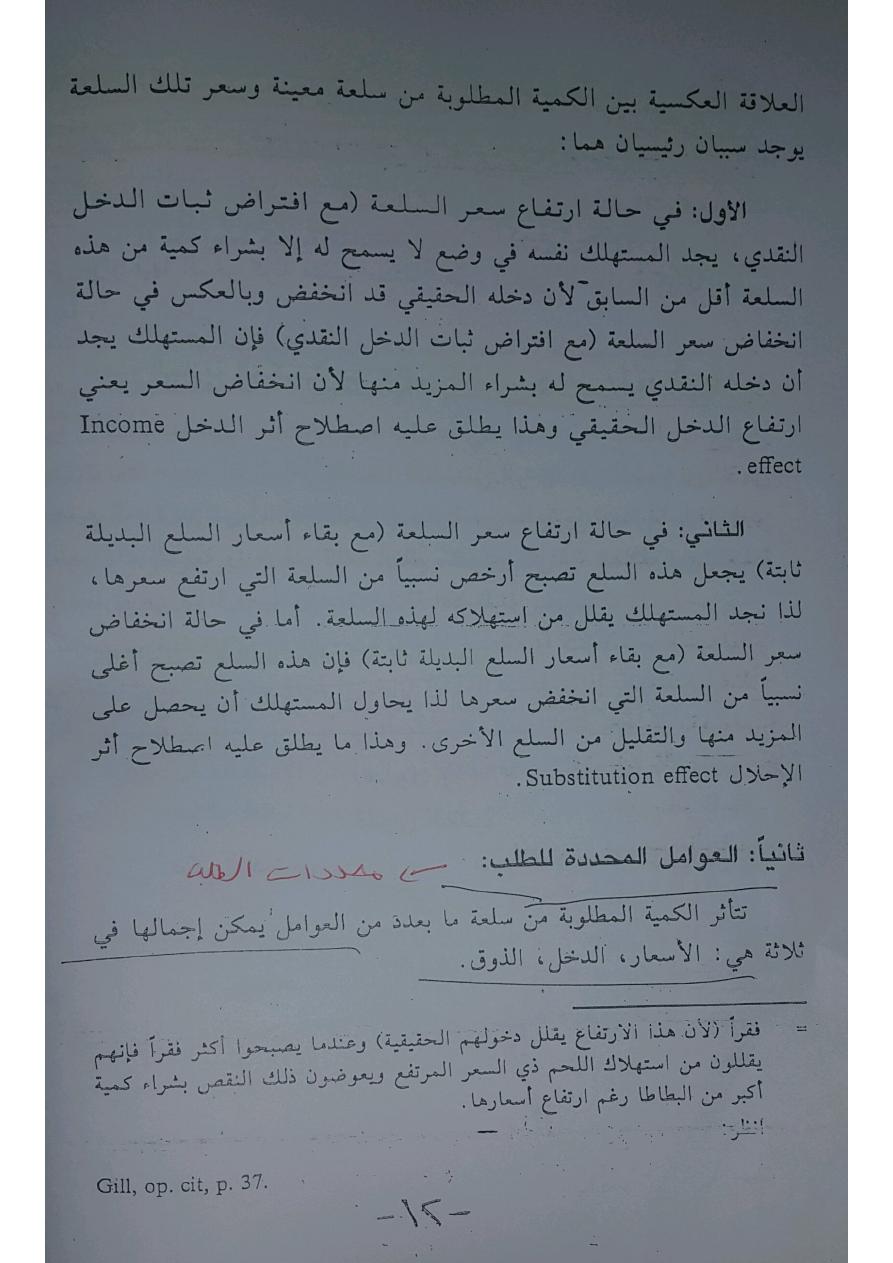 العلاقة العكسية بين الكمية المطلوبة من سلعة معينة وسعر تلك السلعة
يوجد سببان رئيسيان هما:
الأول: في حالة ارتفاع سعر السلعة (مع افتراض ثبات الدخل
النقدي، يجد المستهلك نفسه في وضع لا يسمح له إلا بشراء كمية من هذه
السلعة أقل من السابق لأن دخله الحقيقي قد انخفض وبالعكس في حالة
انخفاض سعر السلعة (مع افتراض ثبات الدخل النقدي) فإن المستهلك يجد
أن دخله النقدي يسمح له بشراء المزيد منها لأن انخفاض السعر يعني
ارتفاع الدخل الحقيقي وهذا يطلق عليه اصطلاح أثر الدخل Income
effect.
الثاني: في حالة ارتفاع سعر السلعة (مع بقاء أسعار السلع البديلة
ثابتة) يجعل هذه السلع تصبح أرخص نسبياً من السلعة التي ارتفع سعرها،
لذا نجد المستهلك يقلل من استهلاكه لهذه السلعة. أما في حالة انخفاض
سعر السلعة (مع بقاء أسعار السلع البديلة ثابتة) فإن هذه السلع تصبح أغلى
نسبياً من السلعة التي انخفض سعرها لذا يحاول المستهلك أن يحصل على
المزيد منها والتقليل من السلع الأخرى. وهذا ما يطلق عليه اصطلاح أثر
الإحلال Substitution effect.
ثانياً: العوامل المحددة للطلب: محددات الطلب
تتأثر الكمية المطلوبة من سلعة ما بعدد من العوامل يمكن إجمالها في
ثلاثة هي: الأسعار، الدخل، الذوق.
= فقراً (لأن هذا الارتفاع يقلل دخولهم الحقيقية) وعندما يصبحوا أكثر فقراً فإنهم
يقللون من استهلاك اللحم ذي السعر المرتفع ويعوضون ذلك النقص بشراء كمية
أكبر من البطاطا رغم ارتفاع أسعارها.
انظر:
Gill, op. cit, p. 37.
-١٢-